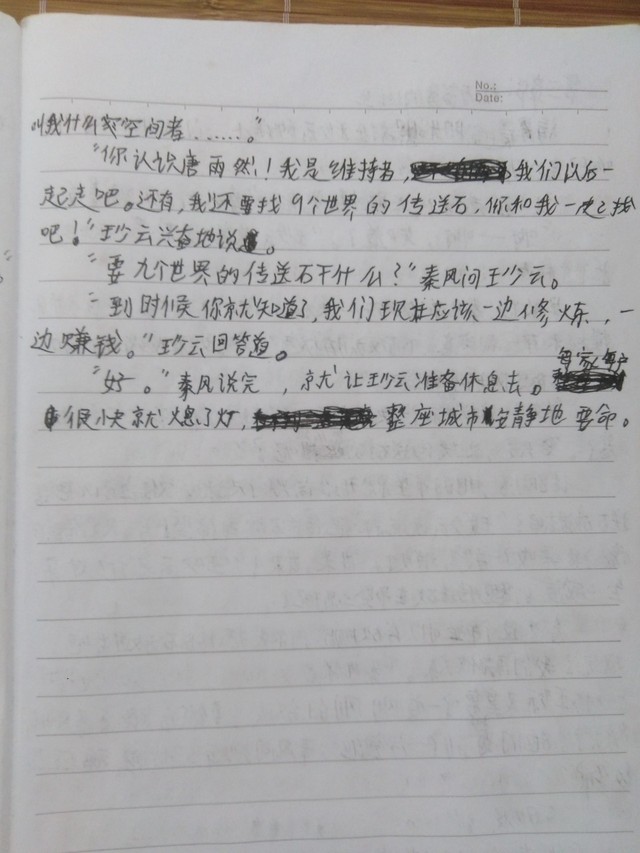 No.:
Date:
叫我什么空间者……."
"你认识唐雨然！我是维持者，我们以后一
起走吧。还有，我还要找9个世界的传送石，你和我一起找
吧！"玢云兴奋地说。
"要九个世界的传送石干什么？"秦风问玢云。
"到时候你就知道了，我们现在应该一边修炼，一
边赚钱。"玢云回答道。
"好。"秦风说完，就让玢云准备休息去。家家户户
很快就熄了灯，整座城市安静地要命。